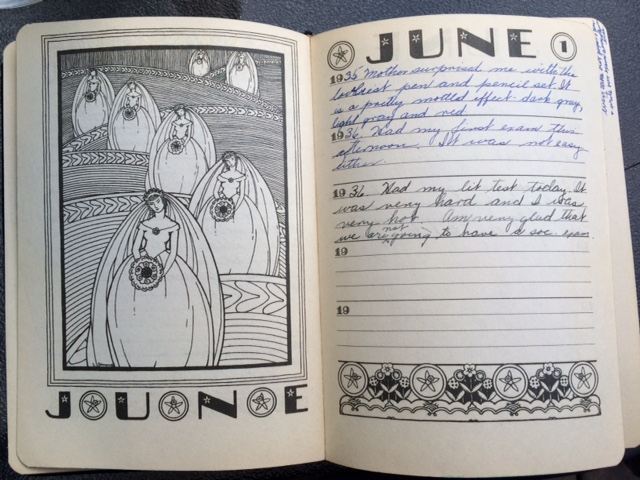 JUNE
JUNE 1
1935 Mother surprised me with the
loveliest pen and pencil set. It
is a pretty mottled effect - dark gray,
light gray and red.
1936 Had my first exam this
afternoon. It was not easy
either.
1936. Had my lit test today. It
was very hard and I was
very hot. Am very glad that
we are not going to have a soc exam.
19
19